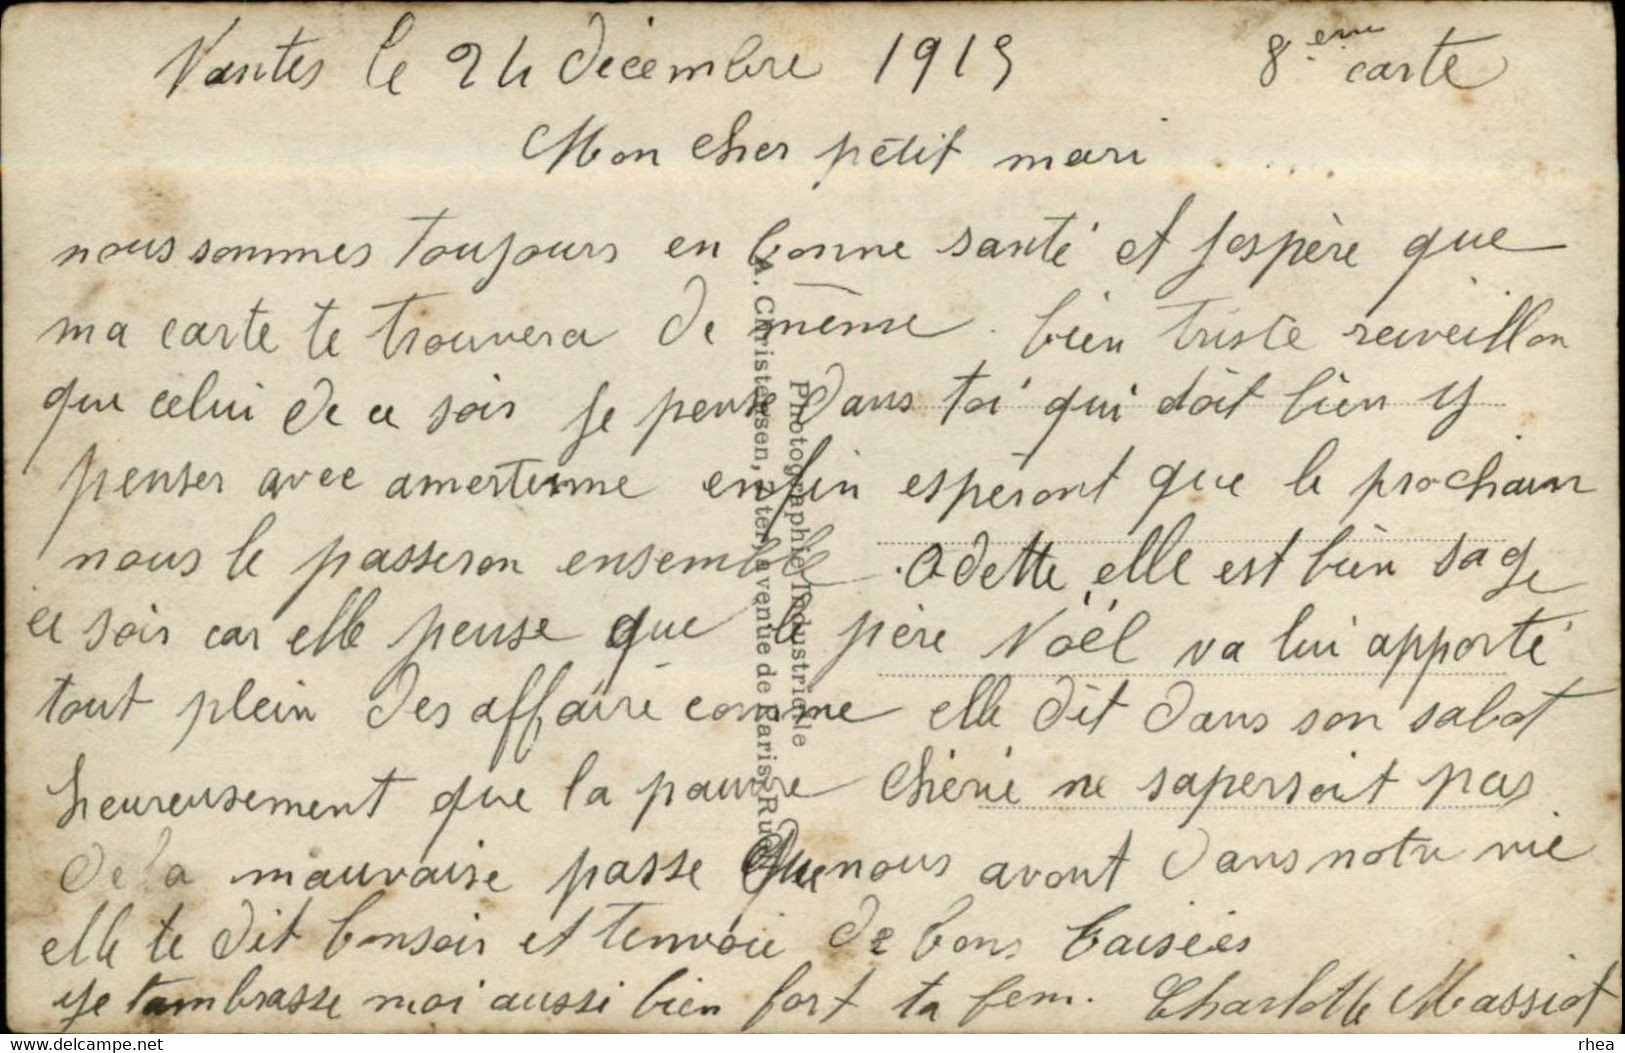 Nantes le 24 décembre 1915 8ème carte
Mon cher petit mari ....
nous sommes toujours en bonne santé et jespère que
ma carte te trouvera de même. bien triste reiveillon
que celui de ce soir je pense dans toi qui doit bien y
penser avec amerteume enfin espéront que le prochain
nous le passeron ensemble. Odette elle est bien sage
ce soir car elle pense que le père Noël va lui apporté
tout plein des affaire comme elle dit dans son sabot
heureusement que la pauvre chérie ne sapersoit pas
de la mauvaise passe que nous avont dans notre vie
elle te dit bonsoir et tenvoie de bons baisées
je tambrasse moi aussi bien fort ta fem. Charlotte Massiot
Photographie Industrielle
A. Christensen, avenue de Paris, Rueil
delcampe.net
rhea